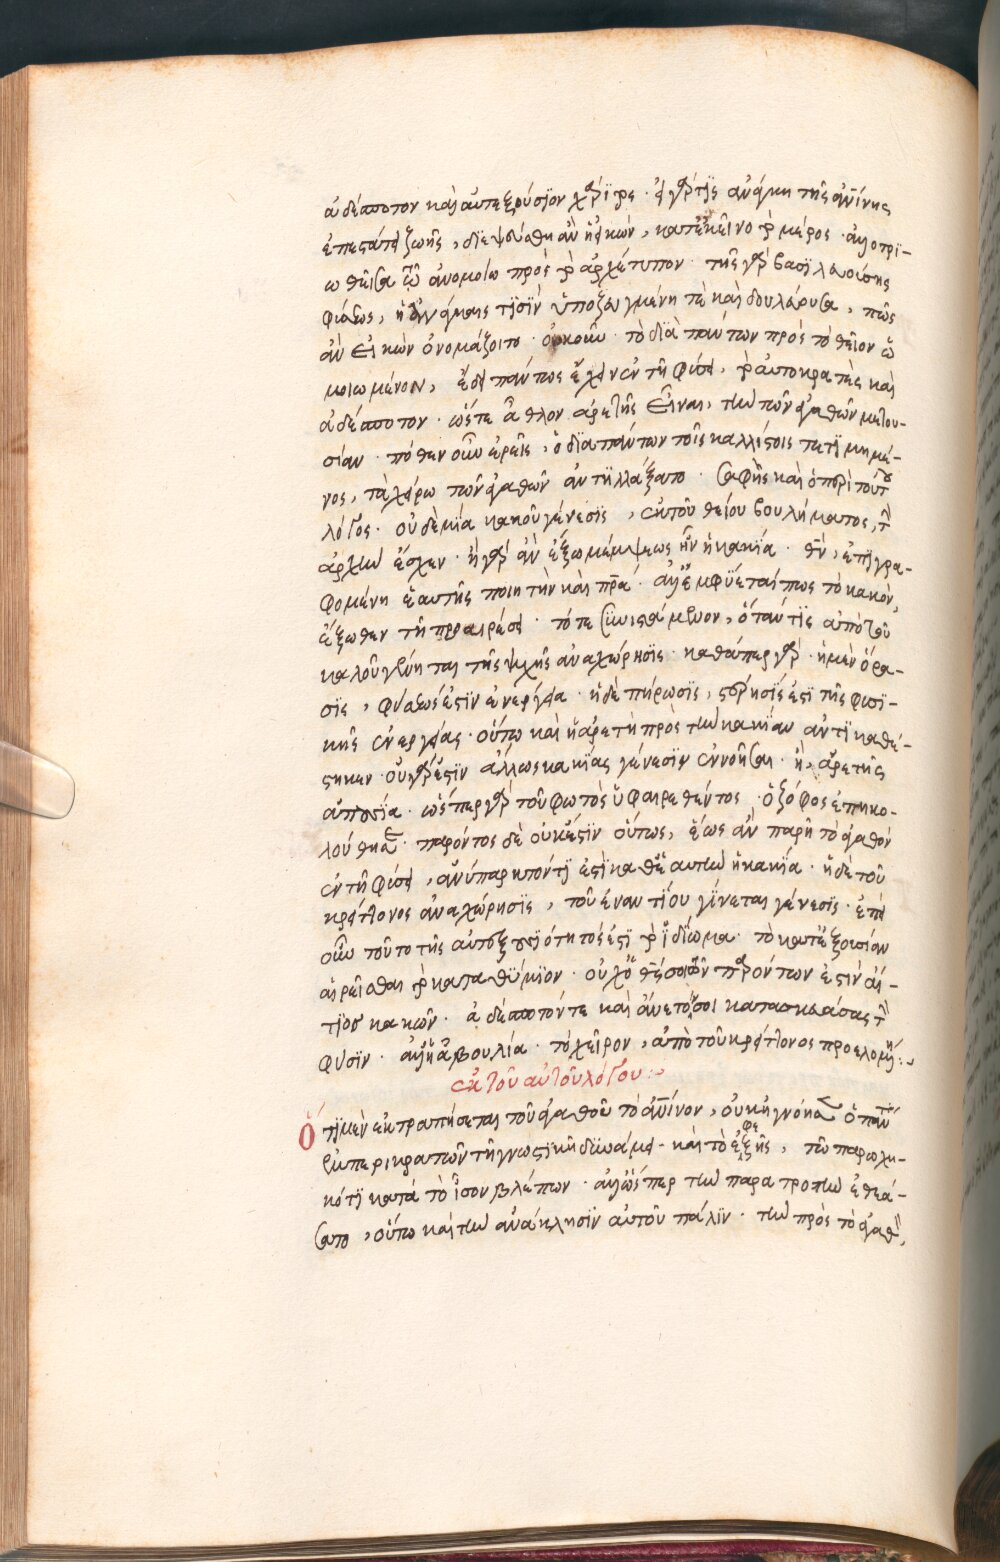 ἀδέσποτον καὶ αὐτεξούσιον χάριτος · εἰ γάρ τις ἀνάγκη τῆς ἀνθρωπίνης
ἐπεστάτει ζωῆς, διεψεύσθη ἂν ἡ εἰκὼν, κατ' ἐκεῖνο τὸ μέρος · ἀλλοτρι-
ωθεῖσα τῷ ἀνομοίῳ πρὸς τὸ ἀρχέτυπον · τῆς γὰρ βασιλευούσης
φύσεως, ἡ ἀνάγκαις τισὶν ὑπεζευγμένη τὲ καὶ δουλεύουσα, πῶς
ἂν εἰκὼν ὀνομάζοιτο · οὐκοῦν τὸ διὰ πάντων πρὸς τὸ θεῖον ὡ-
μοιωμένον, ἔδει πάντως ἔχειν ἐν τῇ φύσει, τὸ αὐτοκρατὲς καὶ
ἀδέσποτον · ὥστε ἆθλον ἀρετῆς εἶναι, τὴν τῶν ἀγαθῶν μετου-
σίαν · πόθεν οὖν ἐρεῖς, ὁ διαπάντων τοῖς καλλίστοις τετιμημέ-
νος, τὰ χείρω τῶν ἀγαθῶν ἀντηλλάξατο · σαφὴς καὶ ὁ περὶ τούτου
λόγος · οὐδεμία κακοῦ γένεσις, ἐκ τοῦ θείου βουλήματος, τὴν
ἀρχὴν ἔσχεν · ἢ γὰρ ἂν ἔξω μέμψεως ἦν ἡ κακία · θεὸν, ἐπιγρα-
φομένη ἑαυτῆς ποιητὴν καὶ πατέρα · ἀλλ' ἐμφύεταί πως τὸ κακὸν,
ἔξωθεν τῇ προαιρέσει · τότε συνιστάμενον, ὅταν τις ἀπὸ τοῦ
καλοῦ γένηται τῆς ψυχῆς ἀναχώρησις · καθάπερ γὰρ ἡ μὲν ὅρα-
σις, φύσεώς ἐστιν ἐνέργεια · ἡ δὲ πήρωσις, στέρησίς ἐστι τῆς φυσι-
κῆς ἐνεργείας · οὕτω καὶ ἡ ἀρετὴ πρὸς τὴν κακίαν ἀντικαθέ-
στηκεν · οὐ γάρ ἐστιν ἄλλως κακίας γένεσιν ἐννοῆσαι · ἢ ἀρετῆς
ἀπουσία · ὥσπερ γὰρ τοῦ φωτὸς ὑφαιρεθέντος · ὁ ζόφος ἐπηκο-
λούθησε · παρόντος δὲ οὐκ ἔστιν οὕτως, ἕως ἂν παρῇ τὸ ἀγαθὸν
ἐν τῇ φύσει, ἀνύπαρκτόν τι ἐστὶ καθ' ἑαυτὴν ἡ κακία · ἡ δὲ τοῦ
κρείττονος ἀναχώρησις, τοῦ ἐναντίου γίνεται γένεσις · ἐπεὶ
οὖν τοῦτο τῆς αὐτεξουσιότητός ἐστι τὸ ἰδίωμα · τὸ κατ' ἐξουσίαν
αἱρεῖσθαι τὸ καταθύμιον · οὐχ ὁ θεός σοι τῶν παρόντων ἐστὶν αἴ-
τιος κακῶν · ἀδέσποτόν τε καὶ ἄνετόν σοι κατασκευάσας τὴν
φύσιν · ἀλλ' ἡ ἀβουλία · τὸ χεῖρον, ἀπὸ τοῦ κρείττονος προελομένη:-
ἐκ τοῦ αὐτοῦ λόγου:-
Ὅτι μὲν ἐκτραπήσεται τοῦ ἀγαθοῦ τὸ ἀνθρώπινον, οὐκ ἠγνόησεν ὁ πάντα
ἐμπερικρατῶν τῇ γνωστικῇ δυνάμει · καὶ τὸ ἐφεξῆς, τῷ παρῳχη-
κότι κατὰ τὸ ἴσον βλέπων · ἀλλ' ὥσπερ τὴν παρατροπὴν ἐθεά-
σατο, οὕτω καὶ τὴν ἀνάκλησιν αὐτοῦ πάλιν · τὴν πρὸς τὸ ἀγαθὸν,